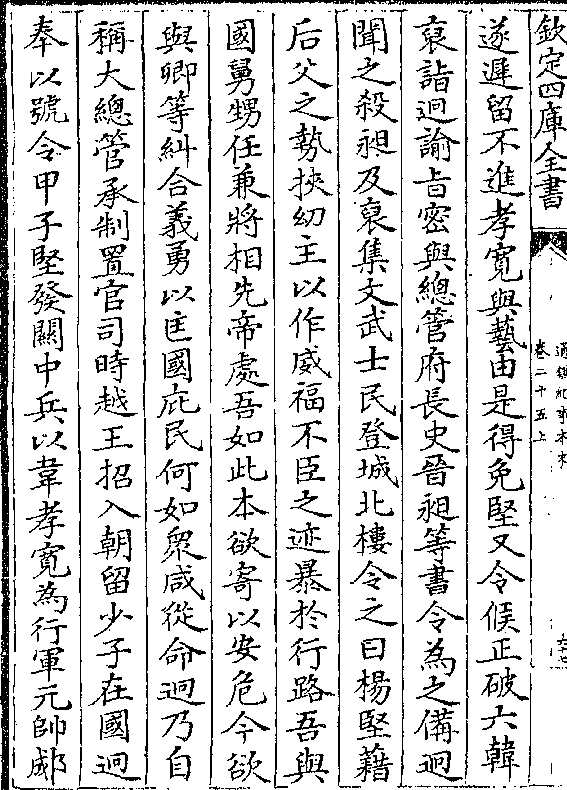 欽定四庫全書
通鑑紀事本末
卷二十五上
遂遲留不進孝寬與藝由是得免堅又令候正破六韓
裒詣迥諭旨密與總管府長史晉昶等書令為之備迥
聞之殺昶及裒集文武士民登城北樓令之曰楊堅藉
后父之勢挾幼主以作威福不臣之迹暴於行路吾與
國舅甥任兼將相先帝處吾如此本欲寄以安危今欲
與卿等糾合義勇以匡國庇民何如衆咸從命迥乃自
稱大總管承制置官司時趙王招入朝留少子在國迥
奉以號令甲子堅發關中兵以韋孝寬為行軍元帥郕